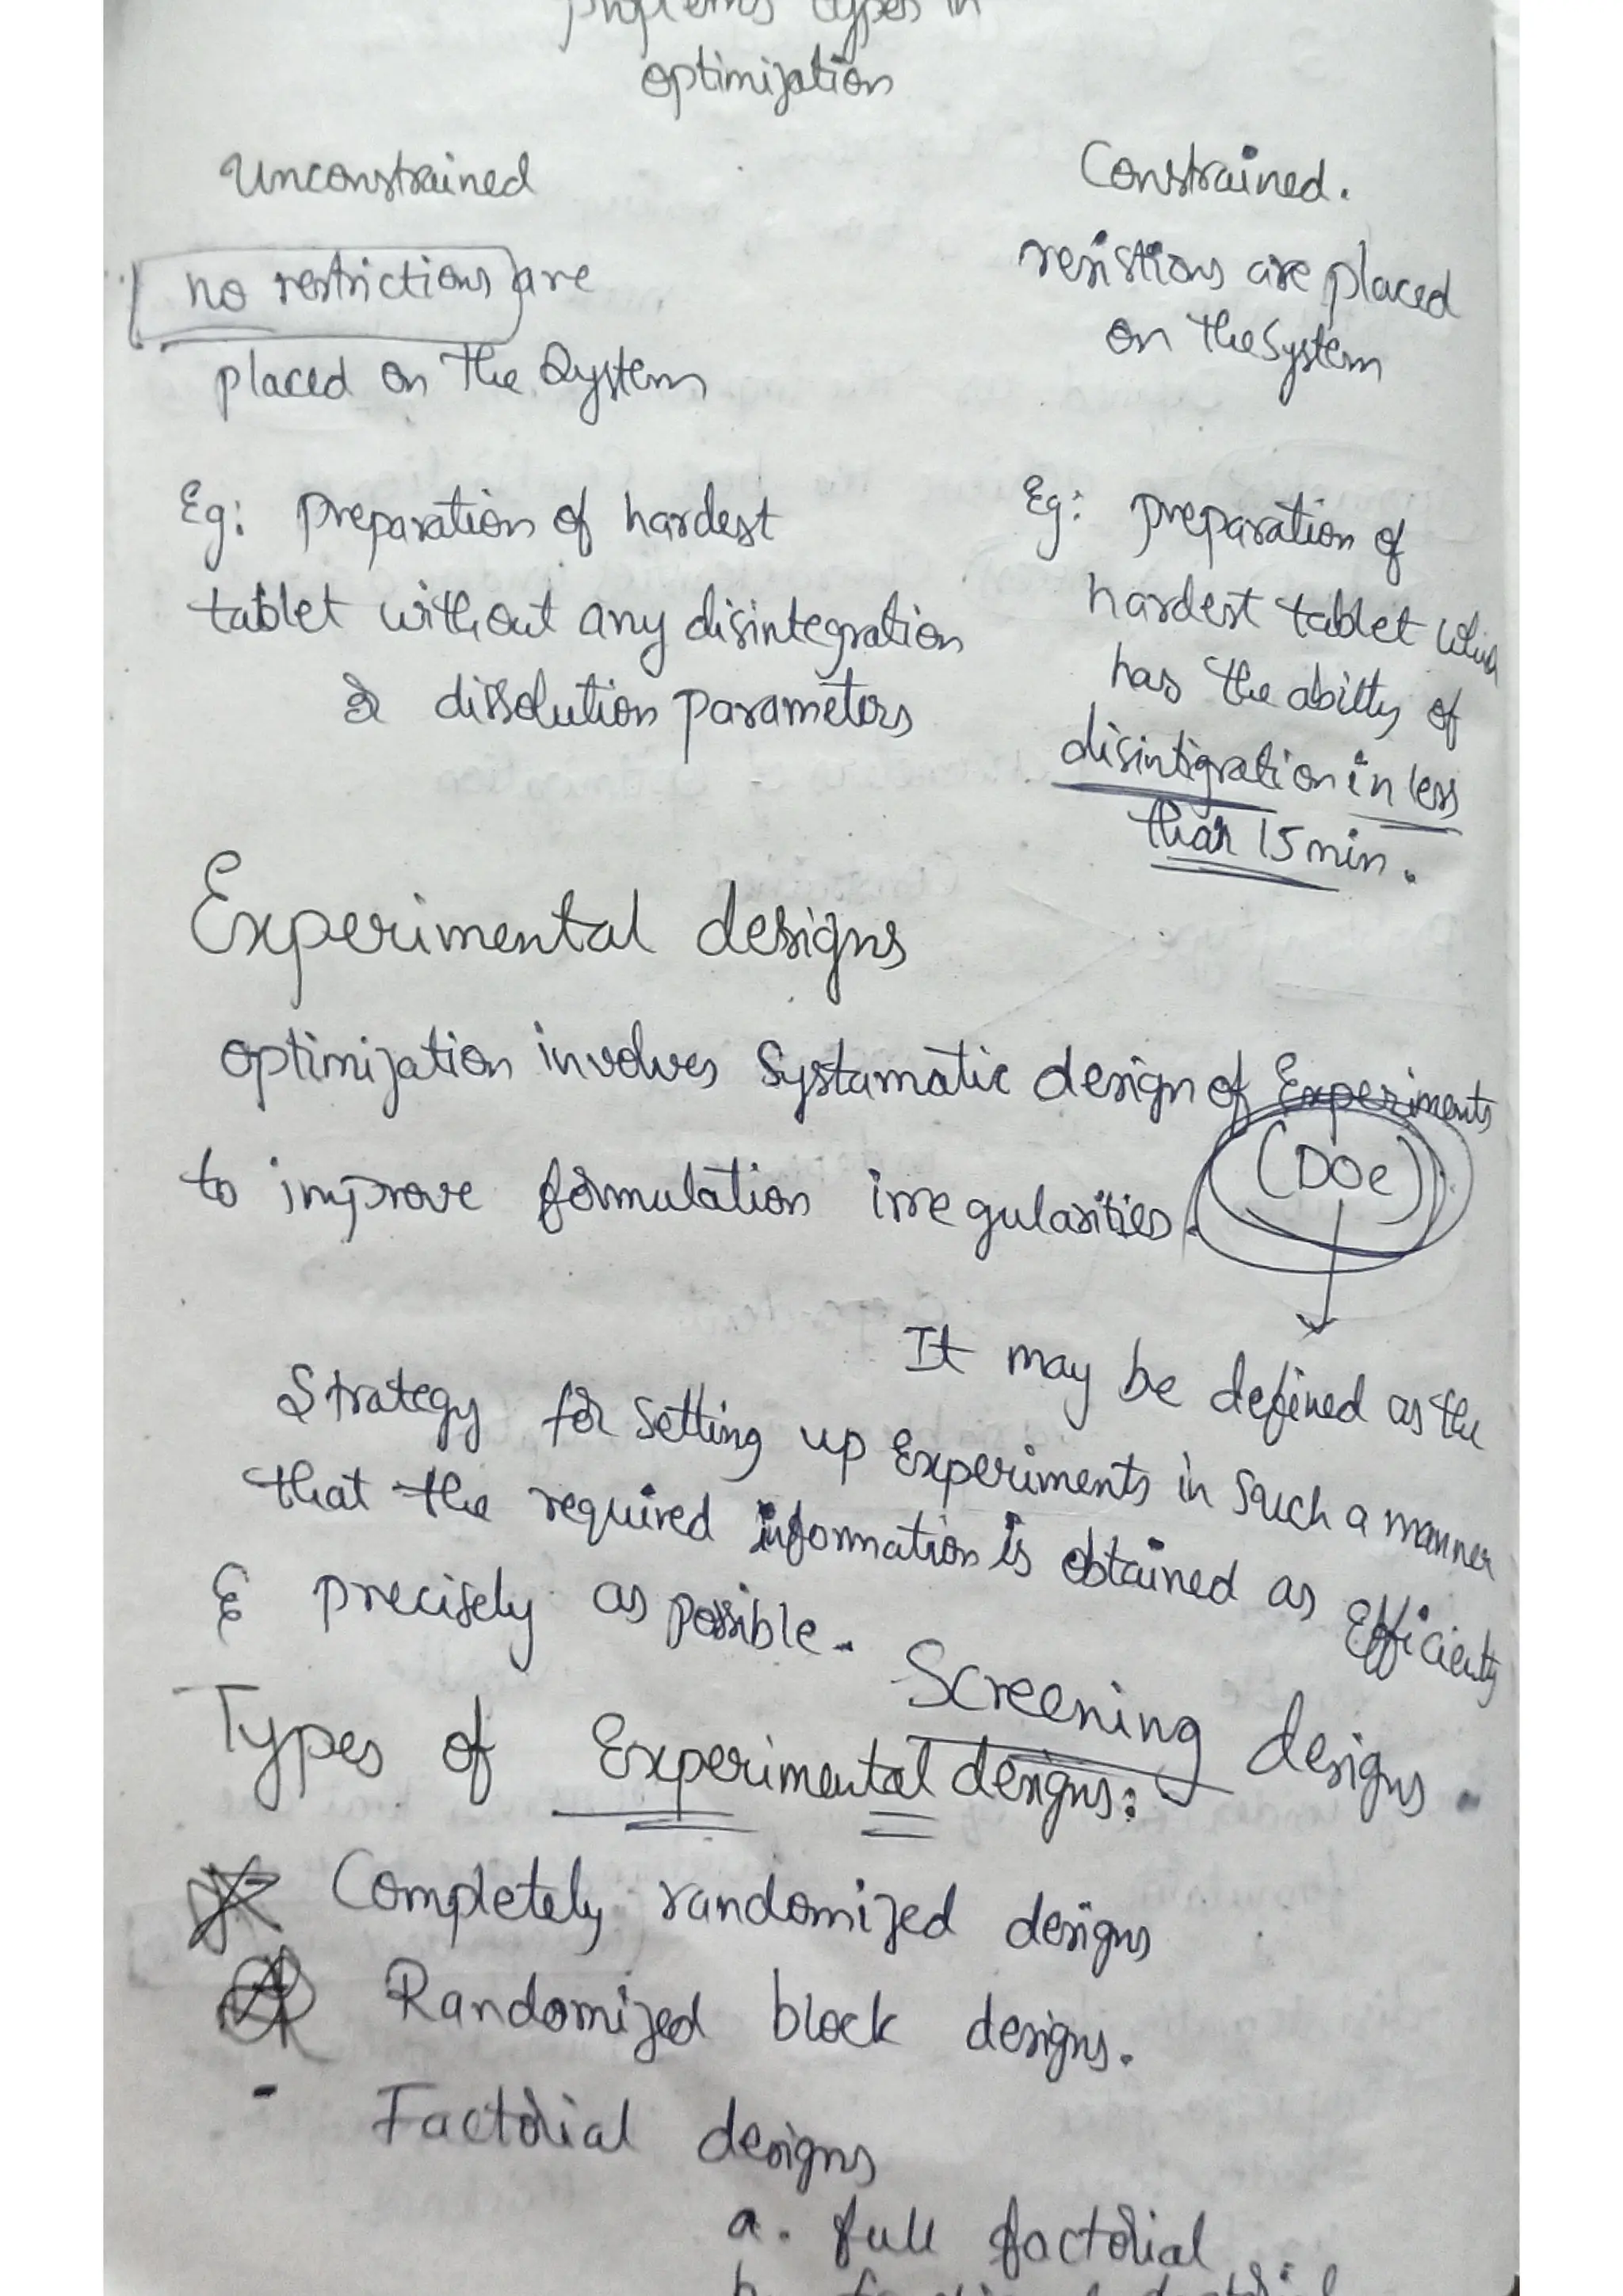 problems types in
optimization
Unconstrained
no restrictions are
placed on the System
Eg: preparation of hardest
tablet without any disintegration
& dissolution parameters
Constrained.
resistions are placed
on the System
Eg: preparation of
hardest tablet which
has the abilty of
disintigration in less
than 15 min.
Experimental designs
optimization involves Systamatic design of Experiments
to improve formulation irregularities. (DOe)
It may be defined as the
Strategy for Setting up Experiments in Such a manner
that the required information is obtained as Efficiently
& precisely as possible.
Screening designs.
Types of Experimental designs:
Completely randomized designs
Randomized block designs.
- Factorial designs
a. full factorial